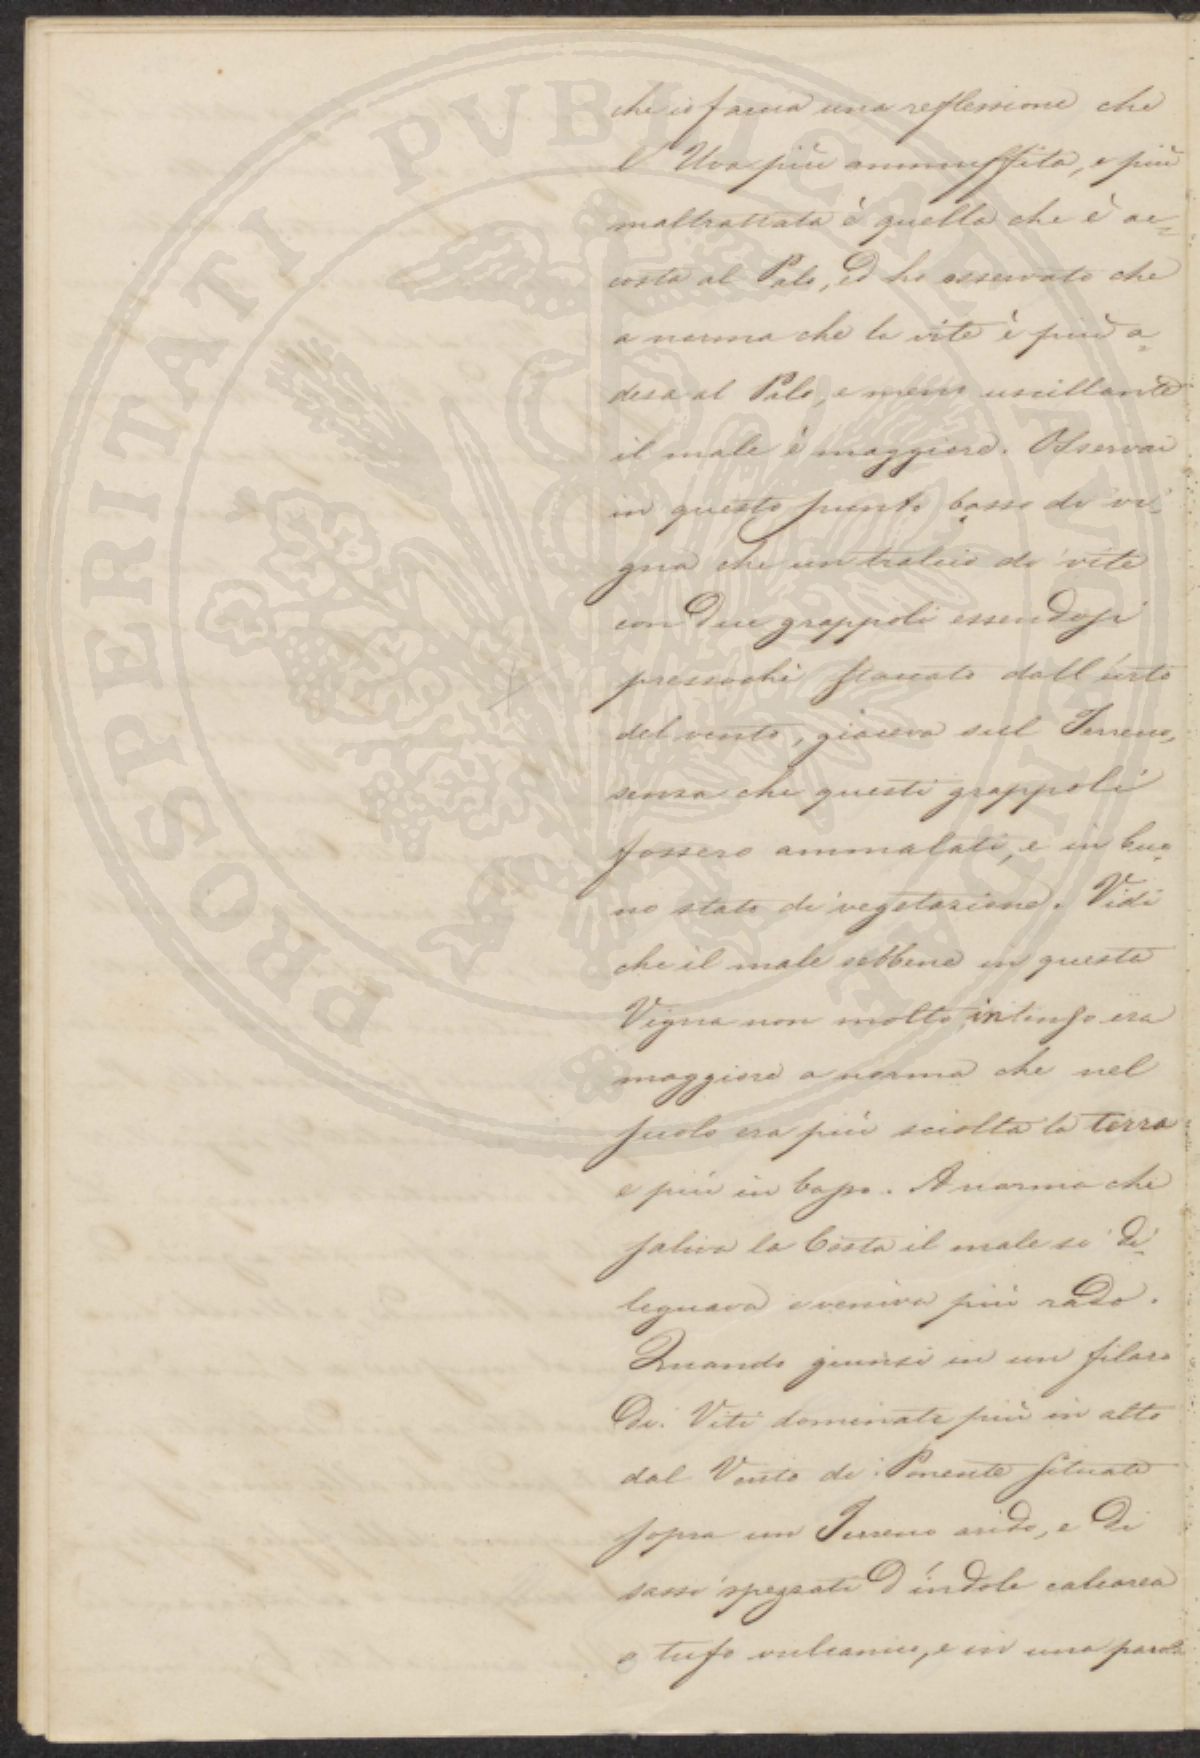 che io faceva una reflessione che
l'Uva più ammuffita, e più
maltrattata è quella che è ac=
costa al Palo, ed ho osservato che
a norma che la vite è più a=
desa al Palo, e meno uscillante
il male è maggiore. Osservai
in questo punto basso di vi=
gna che un tralcio di vite
con due grappoli essendosi
pressochè staccato dall'urto
del vento, giaceva sul Terreno,
senza che questi grappoli
fossero ammalati, e in buo=
no stato di vegetazione. Vidi
che il male sebbene in questa
Vigna non molto intenso era
maggiore a norma che nel
suolo era più sciolta la terra
e più in basso. A norma che
saliva la Costa il male si di=
leguava e veniva più rado.
Quando giunsi in un filaro
di Viti dominate più in alto
dal Vento di Ponente situate
sopra un Terreno arido, e di
sassi spezzati d'indole calcarea
e tufo vulcanico, e in una parola
PROSPERITATI PVBLICAE AVGENDAE